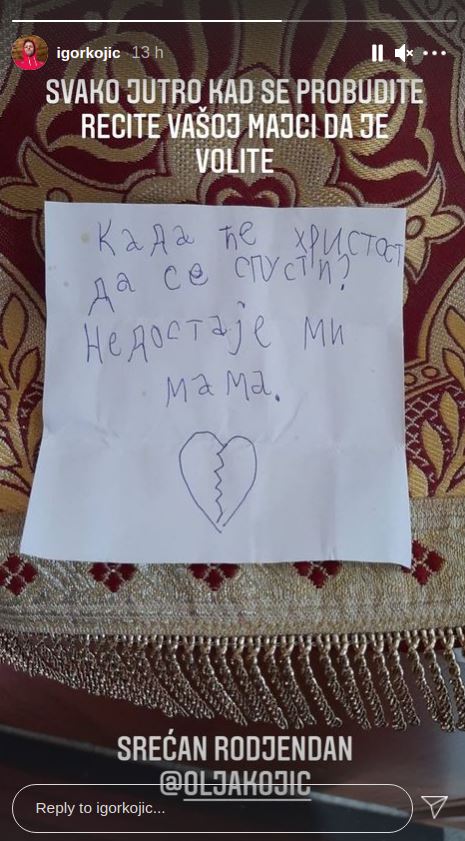 igorkojic 13 h
SVAKO JUTRO KAD SE PROBUDITE
RECITE VAŠOJ MAJCI DA JE
VOLITE
Када ће Христост
да се спусти?
Недостаје ми
мама.
SREĆAN RODJENDAN
@OLJAKOJIC
Reply to igorkojic...